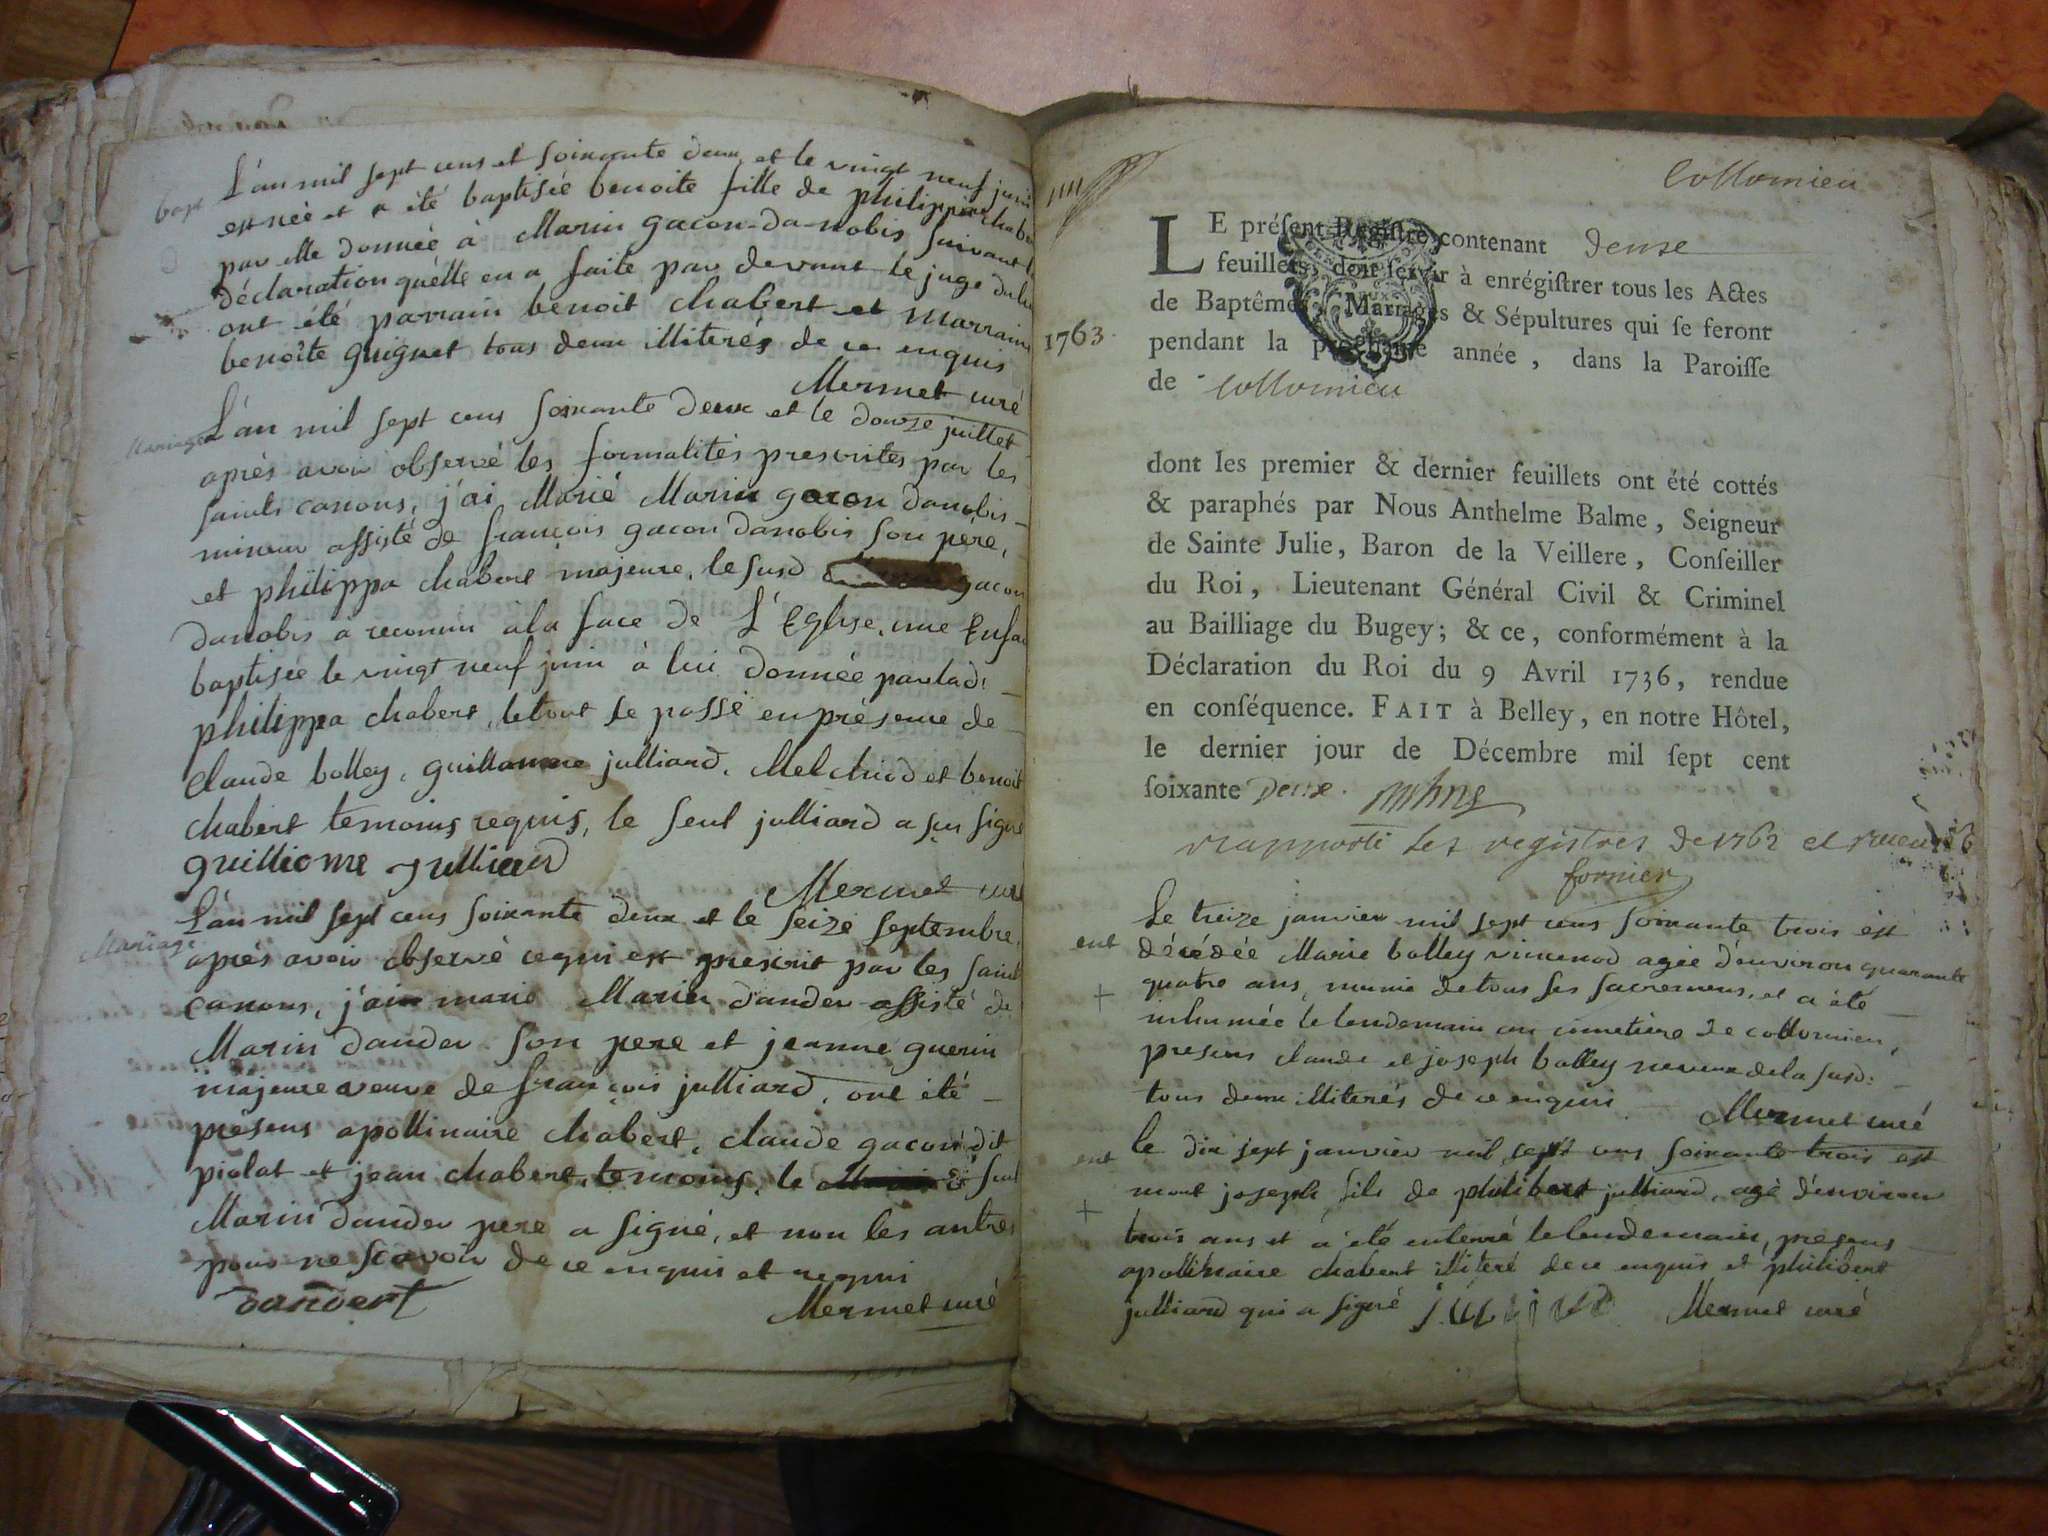 bapt
L'an mil sept cens et soixante deux et le vingt neuf juin
est née et a été baptisée benoite fille de philippine chabert
par elle donnée à Marin gacon-da-nobis suivant la
déclaration quélle en a faite par devant le juge du lieu
ont été parrain benoit chabert et marraine
benoîte guignet tous deux illiterés de ce enquis
Mermet curé
Mariage
L'an mil sept cens soixante deux et le douze juillet
après avoir observé les formalités prescrites par les
saints canons, j'ai Marié Marin gacon danobis
mineur assisté de françois gacon danobis son père,
et philippa chabert majeure, le susd gacon
danobis a reconnu à la face de L'Eglise, une Enfan
baptisée le vingt neuf juin à lui donnée par lad:
philippa chabert, le tout se passé en présence de
Claude bolley, guillaume julliard, Melchiod et benoit
chabert temoins requis, le seul julliard a sçu signé
guilliome Julliard
Mermet curé
Mariage
L'an mil sept cens soixante deux et le seize septembre,
après avoir observé ce qui est prescrit par les saint
canons, j'ai marié Marin dander assisté de
Marin dander son pere et jeanne guerin
majeure veuve de françois julliard, ont été
presens apollinaire chabert, claude gacon dit
piolat et jean chabert, temoins, le seul
Marin dander pere a signé, et non les autres
pour ne sçavoir de ce enquis et requi
dandert
Mermet curé
Collomieu
LE préſent Regiſtre contenant deuse
feuillets, doit ſervir à enrégiſtrer tous les Actes
de Baptêmes, Mariages & Sépultures qui ſe feront
1763.
pendant la prochaine année, dans la Paroiſſe
de Collomieu
dont les premier & dernier feuillets ont été cottés
& paraphés par Nous Anthelme Balme, Seigneur
de Sainte Julie, Baron de la Veillere, Conſeiller
du Roi, Lieutenant Général Civil & Criminel
au Bailliage du Bugey; & ce, conformément à la
Déclaration du Roi du 9 Avril 1736, rendue
en conſéquence. FAIT à Belley, en notre Hôtel,
le dernier jour de Décembre mil ſept cent
ſoixante Deux.
rapporté les registres de 1762 et
fornier
ent
Le treize janvier mil sept cens soixante trois est
décédée Marie bolley vincenod agée d'environ quarante
quatre ans, munie de tous ses sacremens, et a été
inhumée le lendemain au cimetière de collomieu,
presens claude et joseph bolley neveux de la susd:
tous deux illiterés de ce enquis
Mermet curé
ent
le dix sept janvier mil sept cens soixante trois est
mort joseph fils de philibert julliard, agé d'environ
trois ans et a été enterré le lendemain, presens
apollinaire chabert illiteré de ce enquis et philibert
julliard qui a signé Julliard Mermet curé